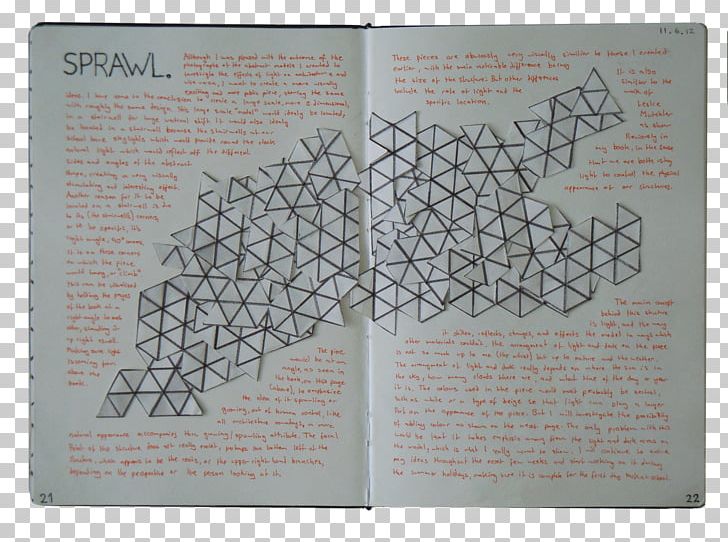 SPRAWL.
Although I was pleased with the outcome of the
photographs of the abstract models I wanted to
investigate the effects of light on architecture and
I want to create a more visually
exciting and more public piece, sharing the same
ideas. I have come to the conclusion to create a large scale, more 3 dimensional,
with roughly the same design. This large scale "model" would ideally be located,
in a stairwell for large vertical shift. It would also ideally
be located in a stairwell because the stairwells at our
school have skylights which would provide round the clock
natural light which would reflect off the different
sides and angles of the abstract
shape, creating a very visually
stimulating and interesting effect.
Another reason for it to be
located on a stairwell is due
to its (the stairwell) corners,
or to be specific, its
right angle, 90° corners.
It is on these corners
on which the piece
would hang, or "climb"
This can be visualised
by holding the pages
of the book at a
right angle to each
other, standing it
up right itself.
Making sure light
is coming from
above the
book.
The piece
would be at an
angle, as seen in
the book, on this page
(above), to emphasise
the idea of it sprawling or
growing, out of human control, like
all architecture nowadays, a more
natural appearance accompanies this growing/sprawling attribute. The focal
Point of the structure does not really exist, perhaps the bottom left of the
structure, which appears to be the roots, or the upper right hand branches,
depending on the perspective or the person looking at it.
21
11.6.12
These pieces are obviously very visually similar to those I created
earlier, with the main noticable difference being
the size of the structure. But other differences
include the role of light and the
specific location.
It is also
similar to the
work of
Leslie
as shown
Previously in
my book, in the sense
that we are both using
light to control the physical
appearance of our structures.
The main concept
behind this structure
is light, and the way
it shines, reflects, changes, and effects the model in ways which
other materials couldn't. The arrangement of light and dark on the piece
is not so much up to me (the artist) but up to nature and the weather.
The arrangement of light and dark really depends on where the sun is in
the sky, how many clouds there are, and what time of the day or year
it is. The colours used in the piece would most probably be neutral,
such as white or a type of beige so that light can play a larger
Part on the appearance of the piece. But I will investigate the possibility
of adding colour as shown on the next page. The only problem with this
would be that it takes emphasis away from the light and dark areas on
the model, which is what I really want to show. I will continue to evolve
my ideas throughout the next few weeks and start working on it during
the summer holidays, making sure it is complete for the first day back in school.
22